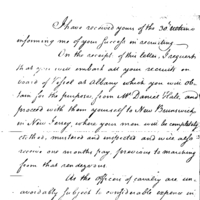 I have received yours of the 30th ultimo
informing me of your success in recruiting.
On the receipt of this letter, I request
that you will embark all your recruits on
board of Vessel at Albany which you will ob-
tain for the purpose, from Mr Daniel Hale, and
proceed with them yourself to New Brunswick
in New Jersey, where your men will be completely
clothed, mustered and inspected and will also
receive one months pay, previous to marching
from that rendezvous.
As the officers of cavalry are un-
avoidably subject to considerable expence in